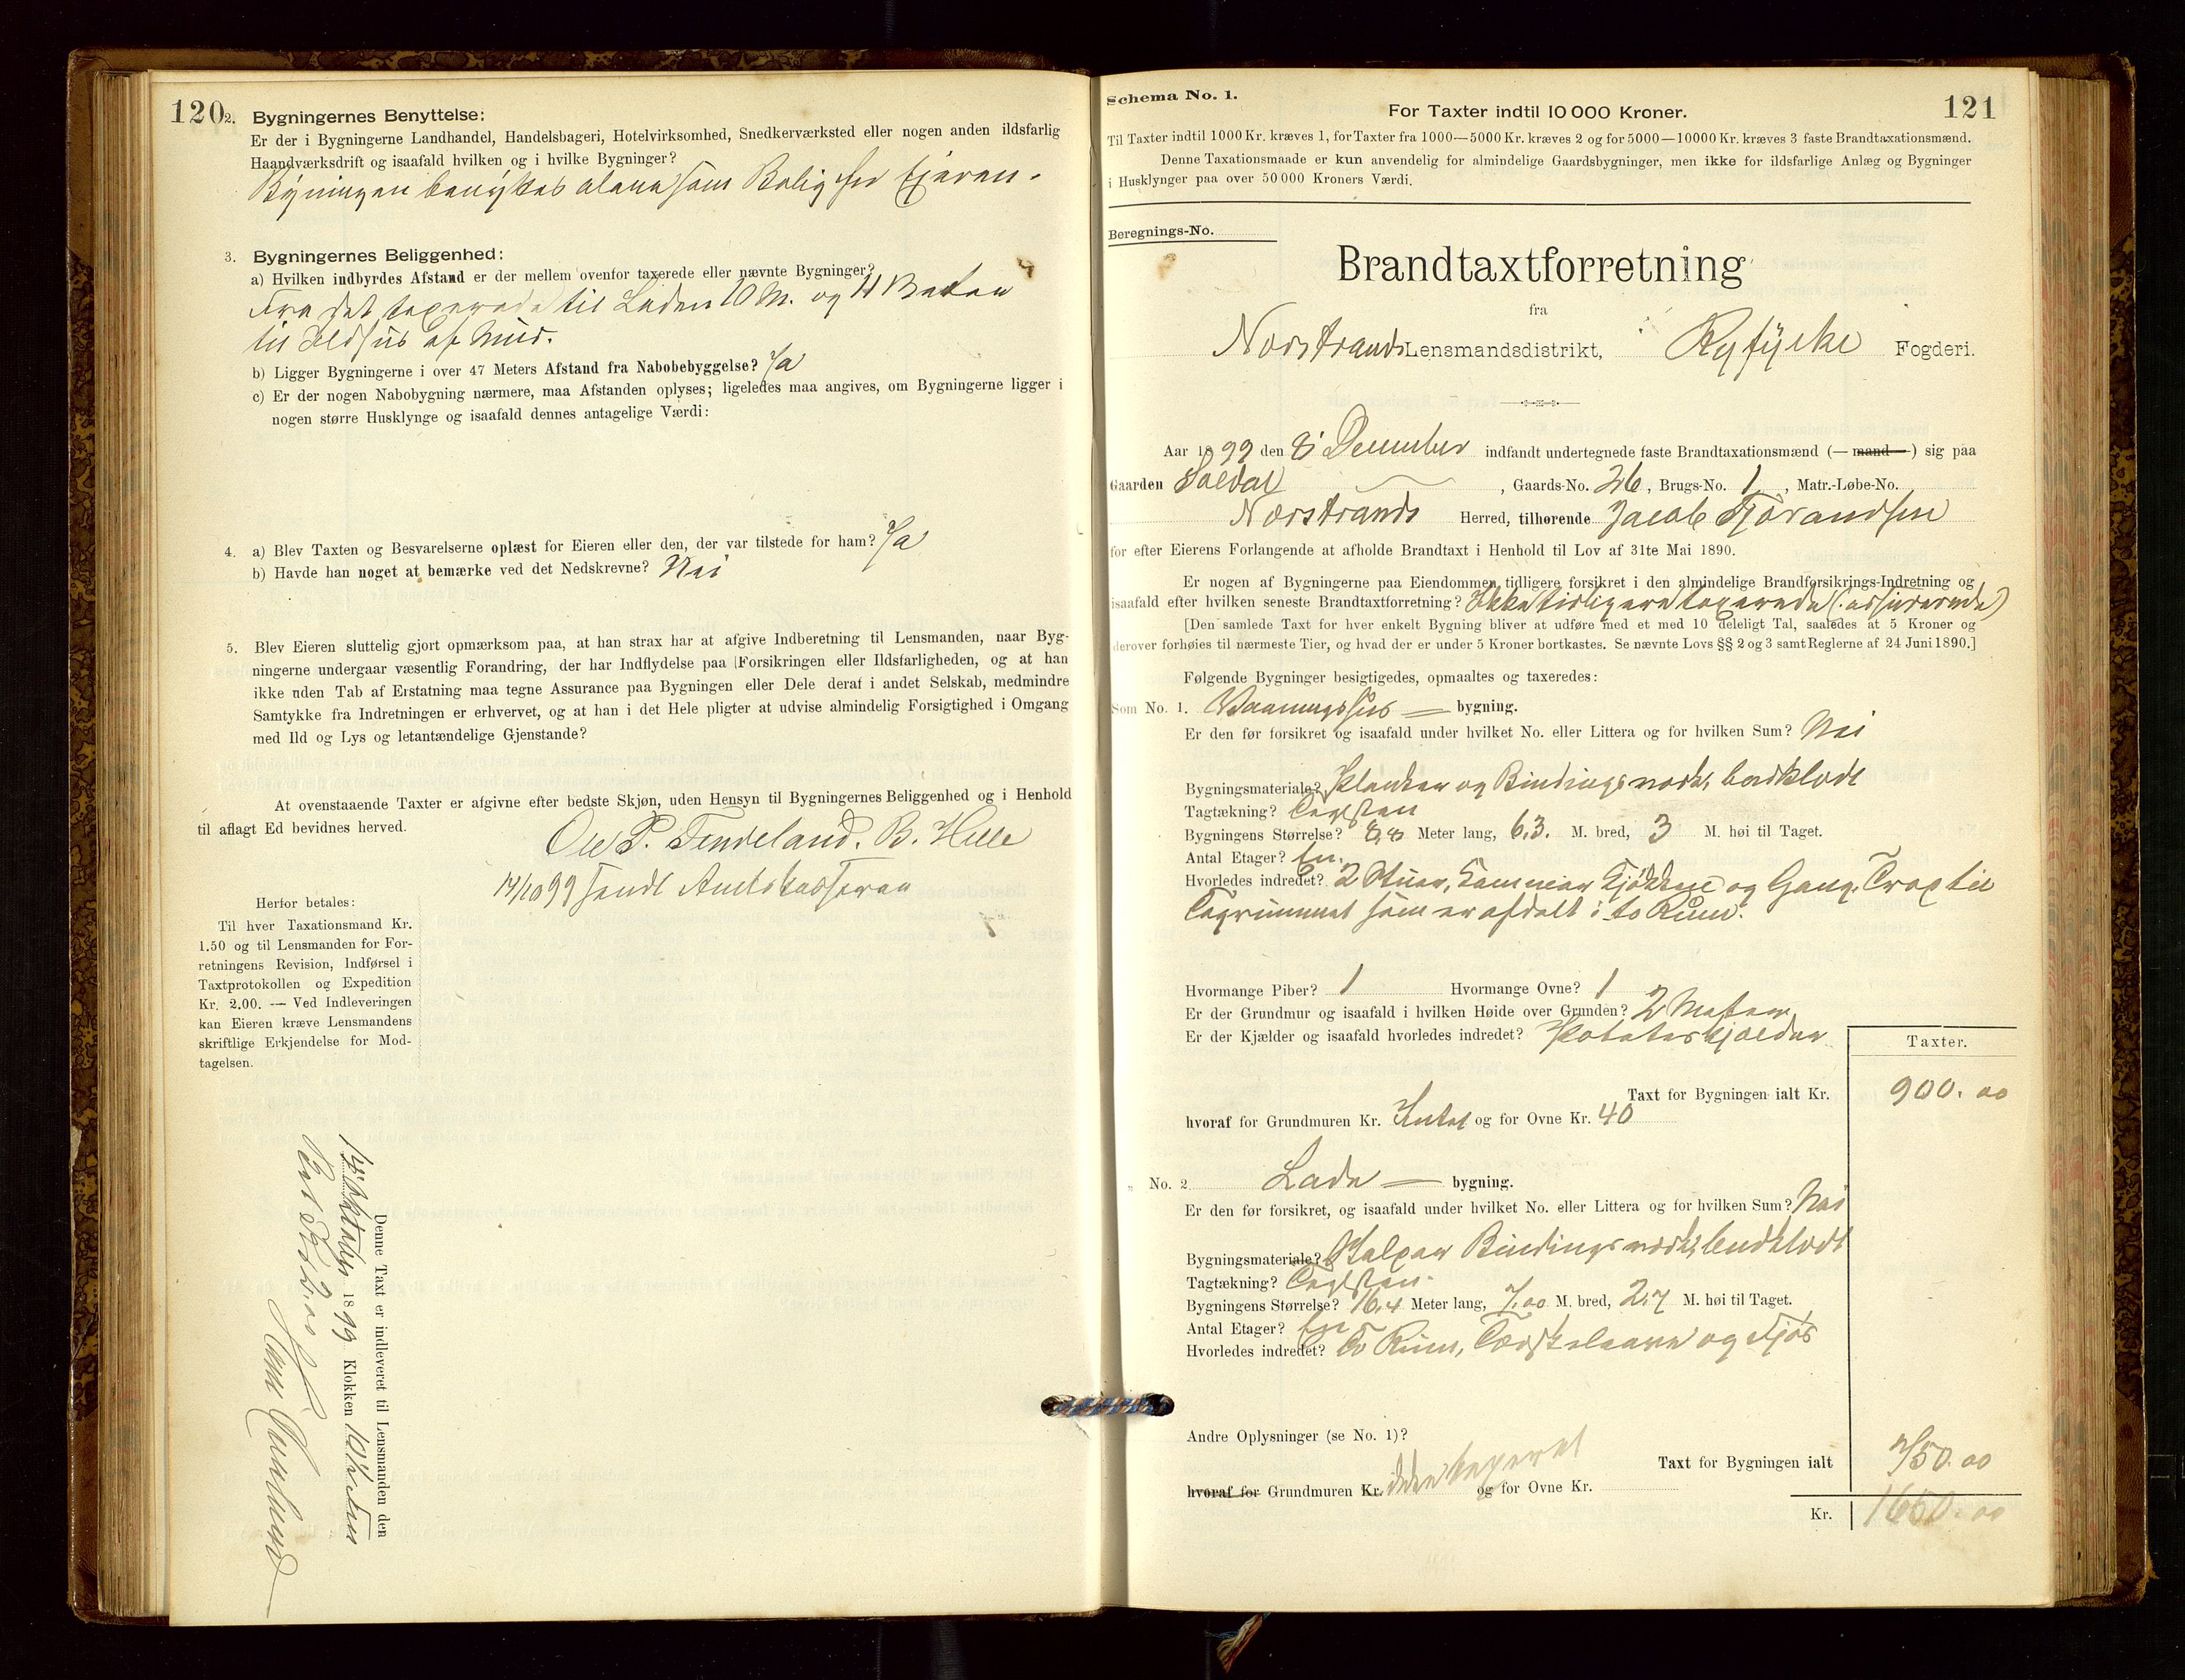 120
2. Bygningernes Benyttelse:
Er der i Bygningerne Landhandel, Handelsbageri, Hotelvirksomhed, Snedkerværksted eller nogen anden ildsfarlig
Haandværksdrift og isaafald hvilken og i hvilke Bygninger?
Bygningen benyttes alene som Bolig for Eieren.
3. Bygningernes Beliggenhed:
a) Hvilken indbyrdes Afstand er der mellem ovenfor taxerede eller nævnte Bygninger?
Fra det taxerede til Laden 10 M. og 11 Meter
til Ildhus af Mur.
b) Ligger Bygningerne i over 47 Meters Afstand fra Nabobebyggelse? Ja
c) Er der nogen Nabobygning nærmere, maa Afstanden oplyses; ligeledes maa angives, om Bygningerne ligger i
nogen større Husklynge og isaafald dennes antagelige Værdi:
4. a) Blev Taxten og Besvarelserne oplæst for Eieren eller den, der var tilstede for ham? Ja
b) Havde han noget at bemærke ved det Nedskrevne? Nei
5. Blev Eieren sluttelig gjort opmærksom paa, at han strax har at afgive Indberetning til Lensmanden, naar Byg-
ningerne undergaar væsentlig Forandring, der har Indflydelse paa Forsikringen eller Ildsfarligheden, og at han
ikke uden Tab af Erstatning maa tegne Assurance paa Bygningen eller Dele deraf i andet Selskab, medmindre
Samtykke fra Indretningen er erhvervet, og at han i det Hele pligter at udvise almindelig Forsigtighed i Omgang
med Ild og Lys og letantændelige Gjenstande?
At ovenstaaende Taxter er afgivne efter bedste Skjøn, uden Hensyn til Bygningernes Beliggenhed og i Henhold
til aflagt Ed bevidnes herved.
Ole P. Tendeland. B. Hille
14/10 99 sendt Amtskasseren
Herfor betales:
Til hver Taxationsmand Kr.
1.50 og til Lensmanden for For-
retningens Revision, Indførsel i
Taxtprotokollen og Expedition
Kr. 2.00. — Ved Indleveringen
kan Eieren kræve Lensmandens
skriftlige Erkjendelse for Mod-
tagelsen.
Denne Taxt er indleveret til Lensmanden den
1899 Klokken
121
Schema No. 1.
For Taxter indtil 10000 Kroner.
Til Taxter indtil 1000 Kr. kræves 1, for Taxter fra 1000—5000 Kr. kræves 2 og for 5000—10000 Kr. kræves 3 faste Brandtaxationsmænd.
Denne Taxationsmaade er kun anvendelig for almindelige Gaardsbygninger, men ikke for ildsfarlige Anlæg og Bygninger
i Husklynger paa over 50000 Kroners Værdi.
Beregnings-No.
Brandtaxtforretning
fra
Norstrands Lensmandsdistrikt, Ryfylke Fogderi.
Aar 1899 den 8 December indfandt undertegnede faste Brandtaxationsmænd (— mand —) sig paa
Gaarden , Gaards-No. 26, Brugs-No. 1, Matr.-Løbe-No.
Norstrands Herred, tilhørende Jacob Tjorandsen
for efter Eierens Forlangende at afholde Brandtaxt i Henhold til Lov af 31te Mai 1890.
Er nogen af Bygningerne paa Eiendommen tidligere forsikret i den almindelige Brandforsikrings-Indretning og
isaafald efter hvilken seneste Brandtaxtforretning? Ikke tidligere taxerede (assurerede)
[Den samlede Taxt for hver enkelt Bygning bliver at udføre med et med 10 deleligt Tal, saaledes at 5 Kroner og
derover forhøies til nærmeste Tier, og hvad der er under 5 Kroner bortkastes. Se nævnte Lovs §§ 2 og 3 samt Reglerne af 24 Juni 1890.]
Følgende Bygninger besigtigedes, opmaaltes og taxeredes:
Som No. 1. Vaaningshus bygning.
Er den før forsikret og isaafald under hvilket No. eller Littera og for hvilken Sum? Nei
Bygningsmateriale? Planker og Bindingsverk, bordklædt
Tagtækning? Taglsten
Bygningens Størrelse? 8,8 Meter lang, 6.3. M. bred, 3 M. høi til Taget.
Antal Etager? En.
Hvorledes indredet? 2 Stuer, Kammer Kjøkken og Gang. Trap til
Tagrummet som er afdelt i to Rum.
Hvormange Piber? 1 Hvormange Ovne? 1
Er der Grundmur og isaafald i hvilken Høide over Grunden? 2 Meter
Er der Kjælder og isaafald hvorledes indredet? Poteteskjælder
Taxter.
Taxt for Bygningen ialt Kr. 900.00
hvoraf for Grundmuren Kr. Intet og for Ovne Kr. 40
" No. 2 Lade bygning.
Er den før forsikret, og isaafald under hvilket No. eller Littera og for hvilken Sum? Nei
Bygningsmateriale? Stolper Bindingsverk, bordklædt
Tagtækning? Taglsten.
Bygningens Størrelse? 16,4 Meter lang, 7,00 M. bred, 2,7 M. høi til Taget.
Antal Etager? En
Hvorledes indredet? To Rum, Tærskelaave og Fjøs
Andre Oplysninger (se No. 1)?
Taxt for Bygningen ialt 750.00
hvoraf for Grundmuren Kr. ikke taxeret og for Ovne Kr.
Kr. 1650.00